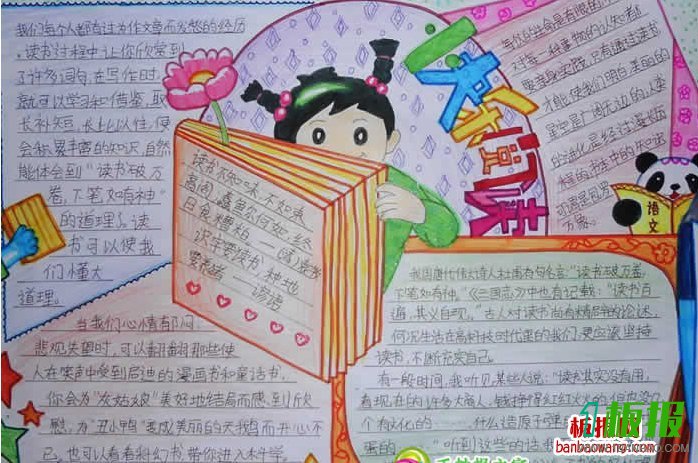 我们每个人都有过为作文章而发愁的经历
读书过程中让你欣受到
了许多词句,在写作时,
就可以学习和借鉴,取
长补短,长此以往,便
会积累丰富的知识,自然
能体会到“读书破万
卷,下笔如有神”
的道理了。读
书可以使我
们懂大
道理。
当我们心情郁闷
悲观失望时,可以翻翻那些使
人在笑声中受到启迪的漫画书和童话书.
你会为“灰姑娘”美好地结局而感到欣
慰,为“丑小鸭”变成美丽的天鹅而开心不
已.也可以看看科幻书带你进入科学
快乐阅读
读书不知味,不如束
高阁;蠹鱼尔何如,终
日食糟粕——袁枚
识字要读书,种地
要养猪——谚语
只有通过读书
才能使我们明白美丽的
星空是广阔无边的,人类
的进化是经过漫长历
程的,书本中的知识
万象。
语文
我国唐代伟大诗人杜甫有句名言:“读书破万卷,
下笔如有神。”《三国志》中也有记载:“读书百
遍,其义自现。”古人对读书尚有精辟的论述,
何况生活在高科技时代里的我们,更应该坚持
读书,不断充实自己。
有一段时间,我听见某些人说:“读书其实没有用,
看现在的许多大商人,钱挣得红红火火,但没几
个有文化的 什么造原子弹
蛋的 ”听到这些的话
板报
banbaowang.com